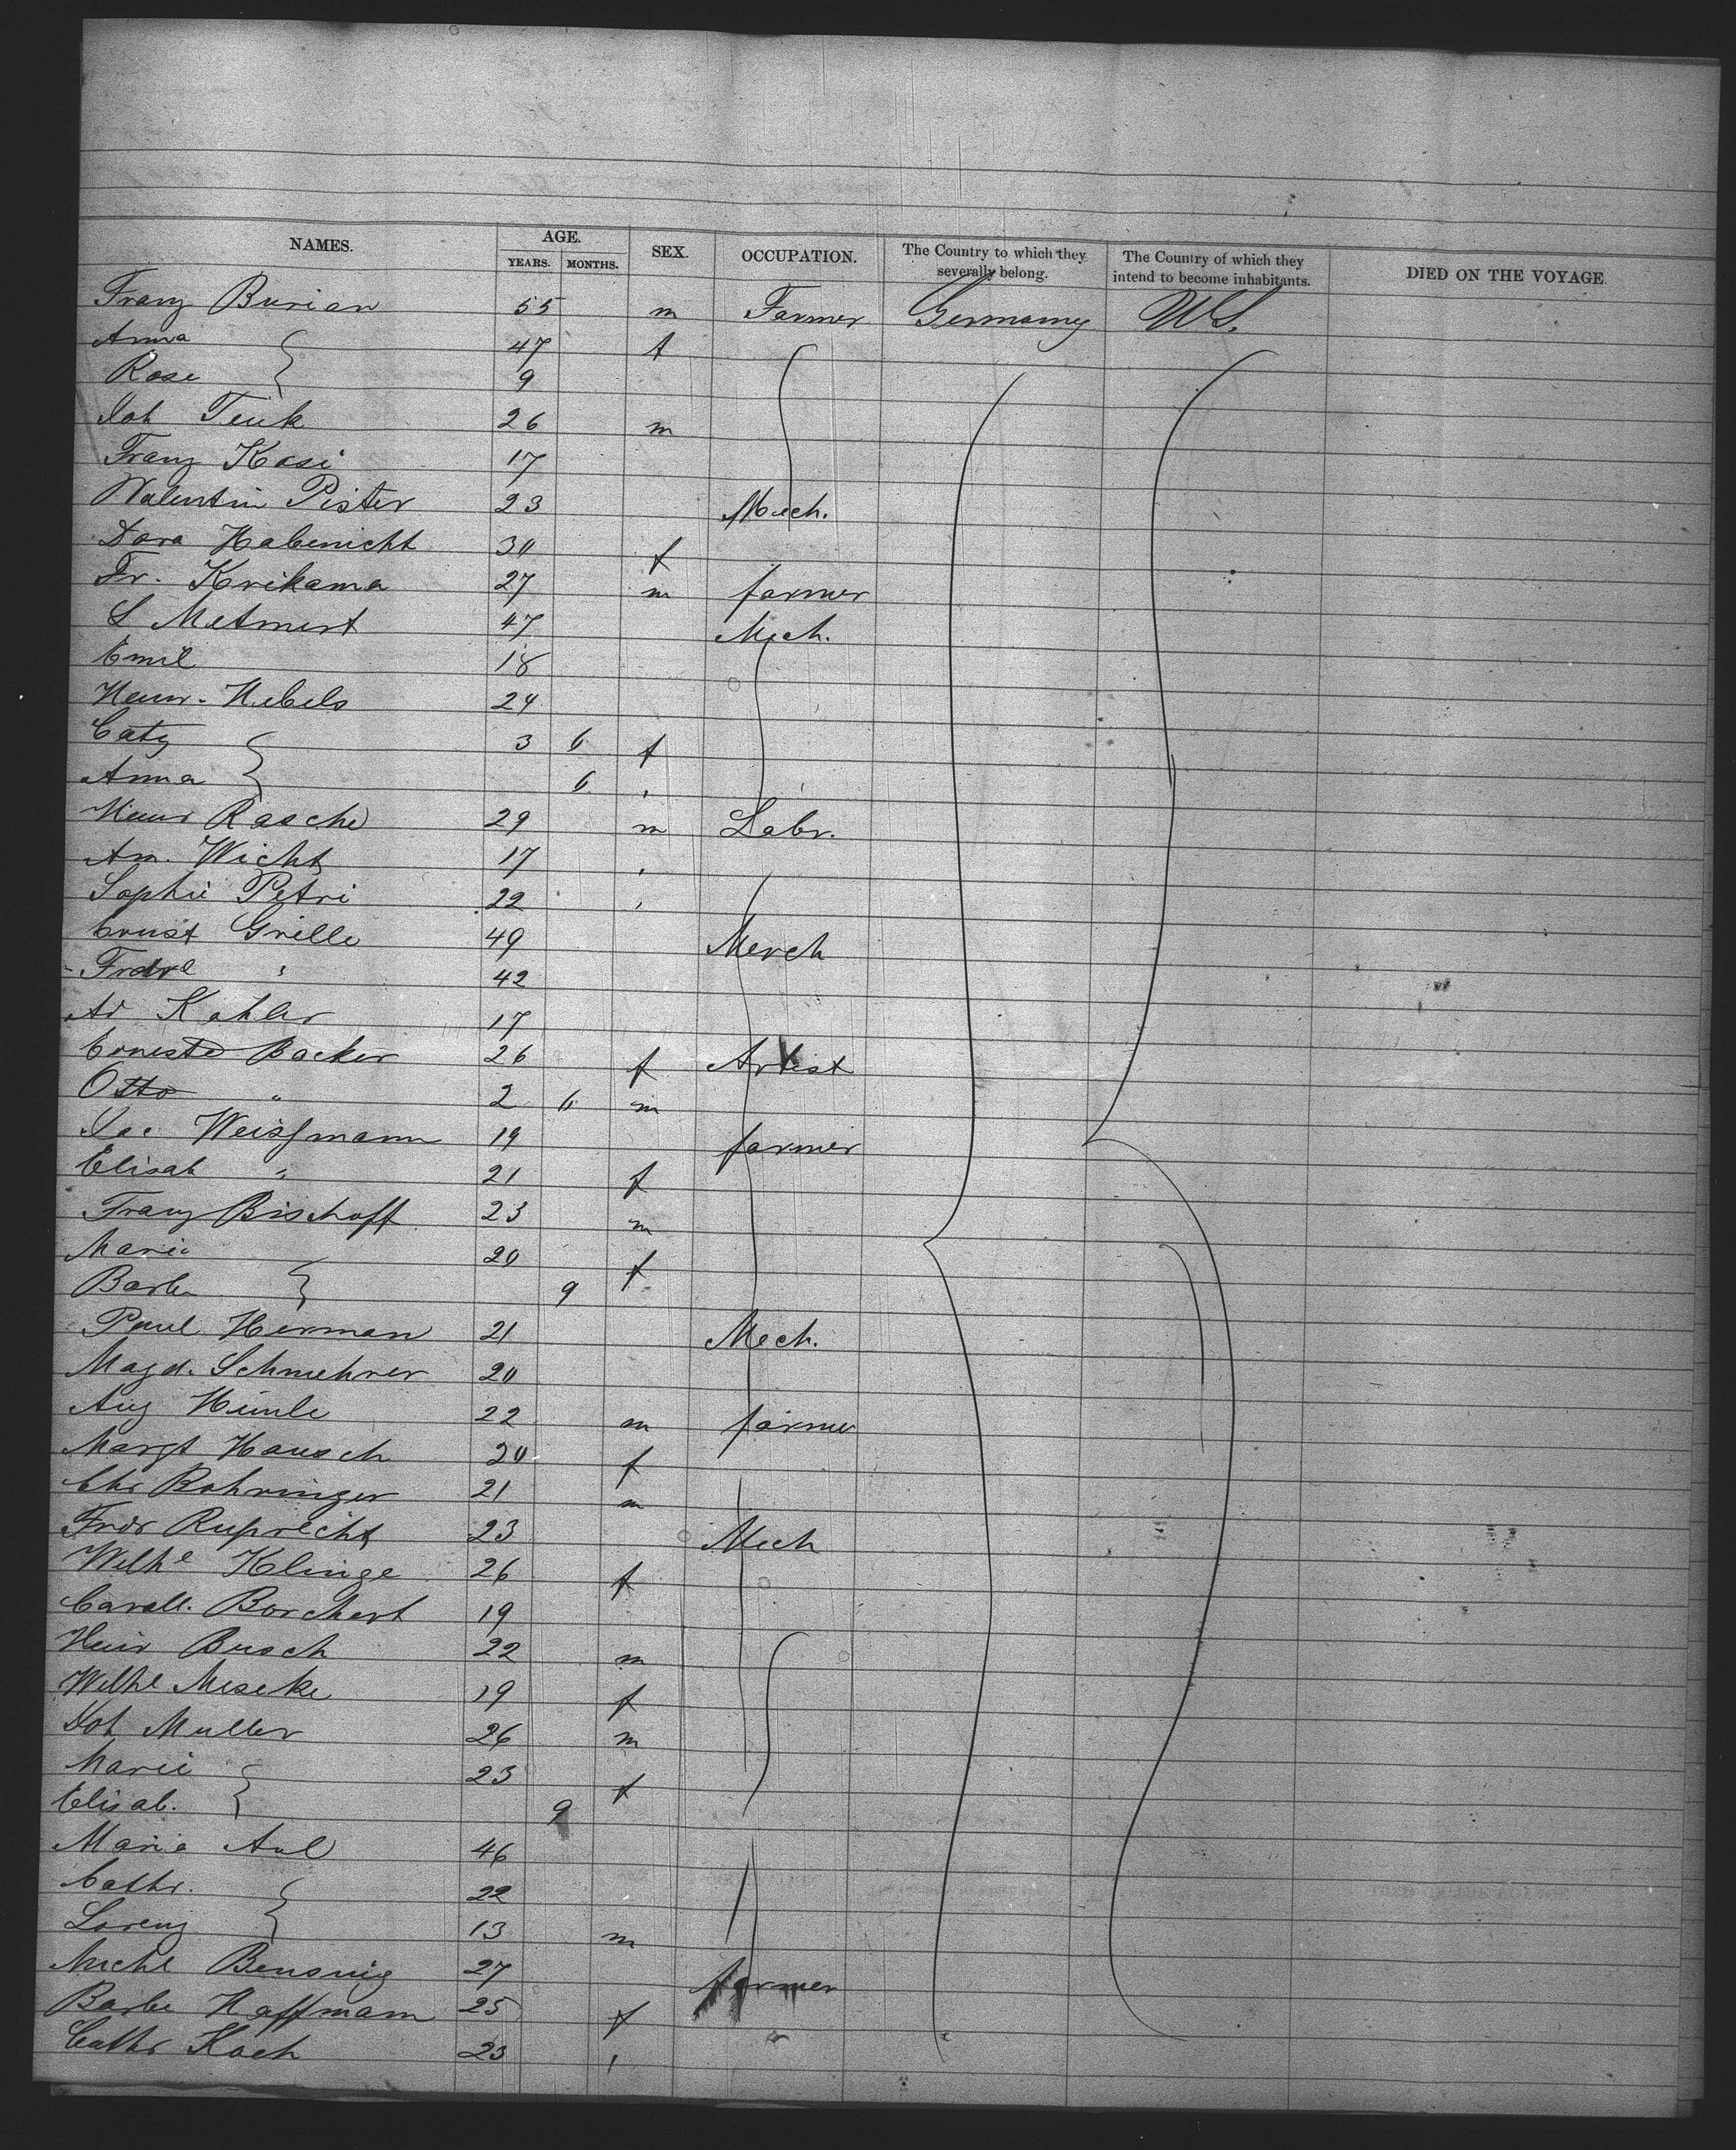 NAMES. AGE. SEX. OCCUPATION. The Country to which they severally belong. The Country of which they intend to become inhabitants. DIED ON THE VOYAGE.
YEARS. MONTHS.
Franz Burian 55 m Farmer Germany US.
Anna 47 f
Rose 9
Joh Teuk 26 m
Franz Kosi 17
Valentin Pister 23 Mech.
Dora Habenicht 30 f
Fr. Krikama 27 m farmer
L Metmert 47 Mech.
Emil 18
Heinr. Nebels 24
Caty 3 6 f
Anna 6 "
Heinr Rasche 29 m Labr.
Am. Wicht 17 "
Sophie Petri 22 "
Ernst Grille 49 Merch
Fredre " 42
Ad Kahler 17
Erneste Backer 26 f Artist
Otto " 2 6 m
Jac Weissmann 19 farmer
Elisab " 21 f
Franz Bischoff 23 m
Marie 20 f
Barb. 9
Paul Herman 21 Mech.
Magd. Schmehrer 20
Aug Himle 22 m farmer
Margt Hausch 20 f
Chr Bohringer 21 m
Fridr Ruprecht 23 Mech
Wilhe Klinge 26 f
Caroll. Borchert 19
Heinr Busch 22 m
Wilhe Meseke 19 f
Joh Muller 26 m
Marie 23 f
Elisab. 9
Maria Aul 46
Cathr. 22
Lorenz 13 m
Michl Bensnig 27 farmer
Barbe Hoffmann 25 f
Cathr Koch 23 "